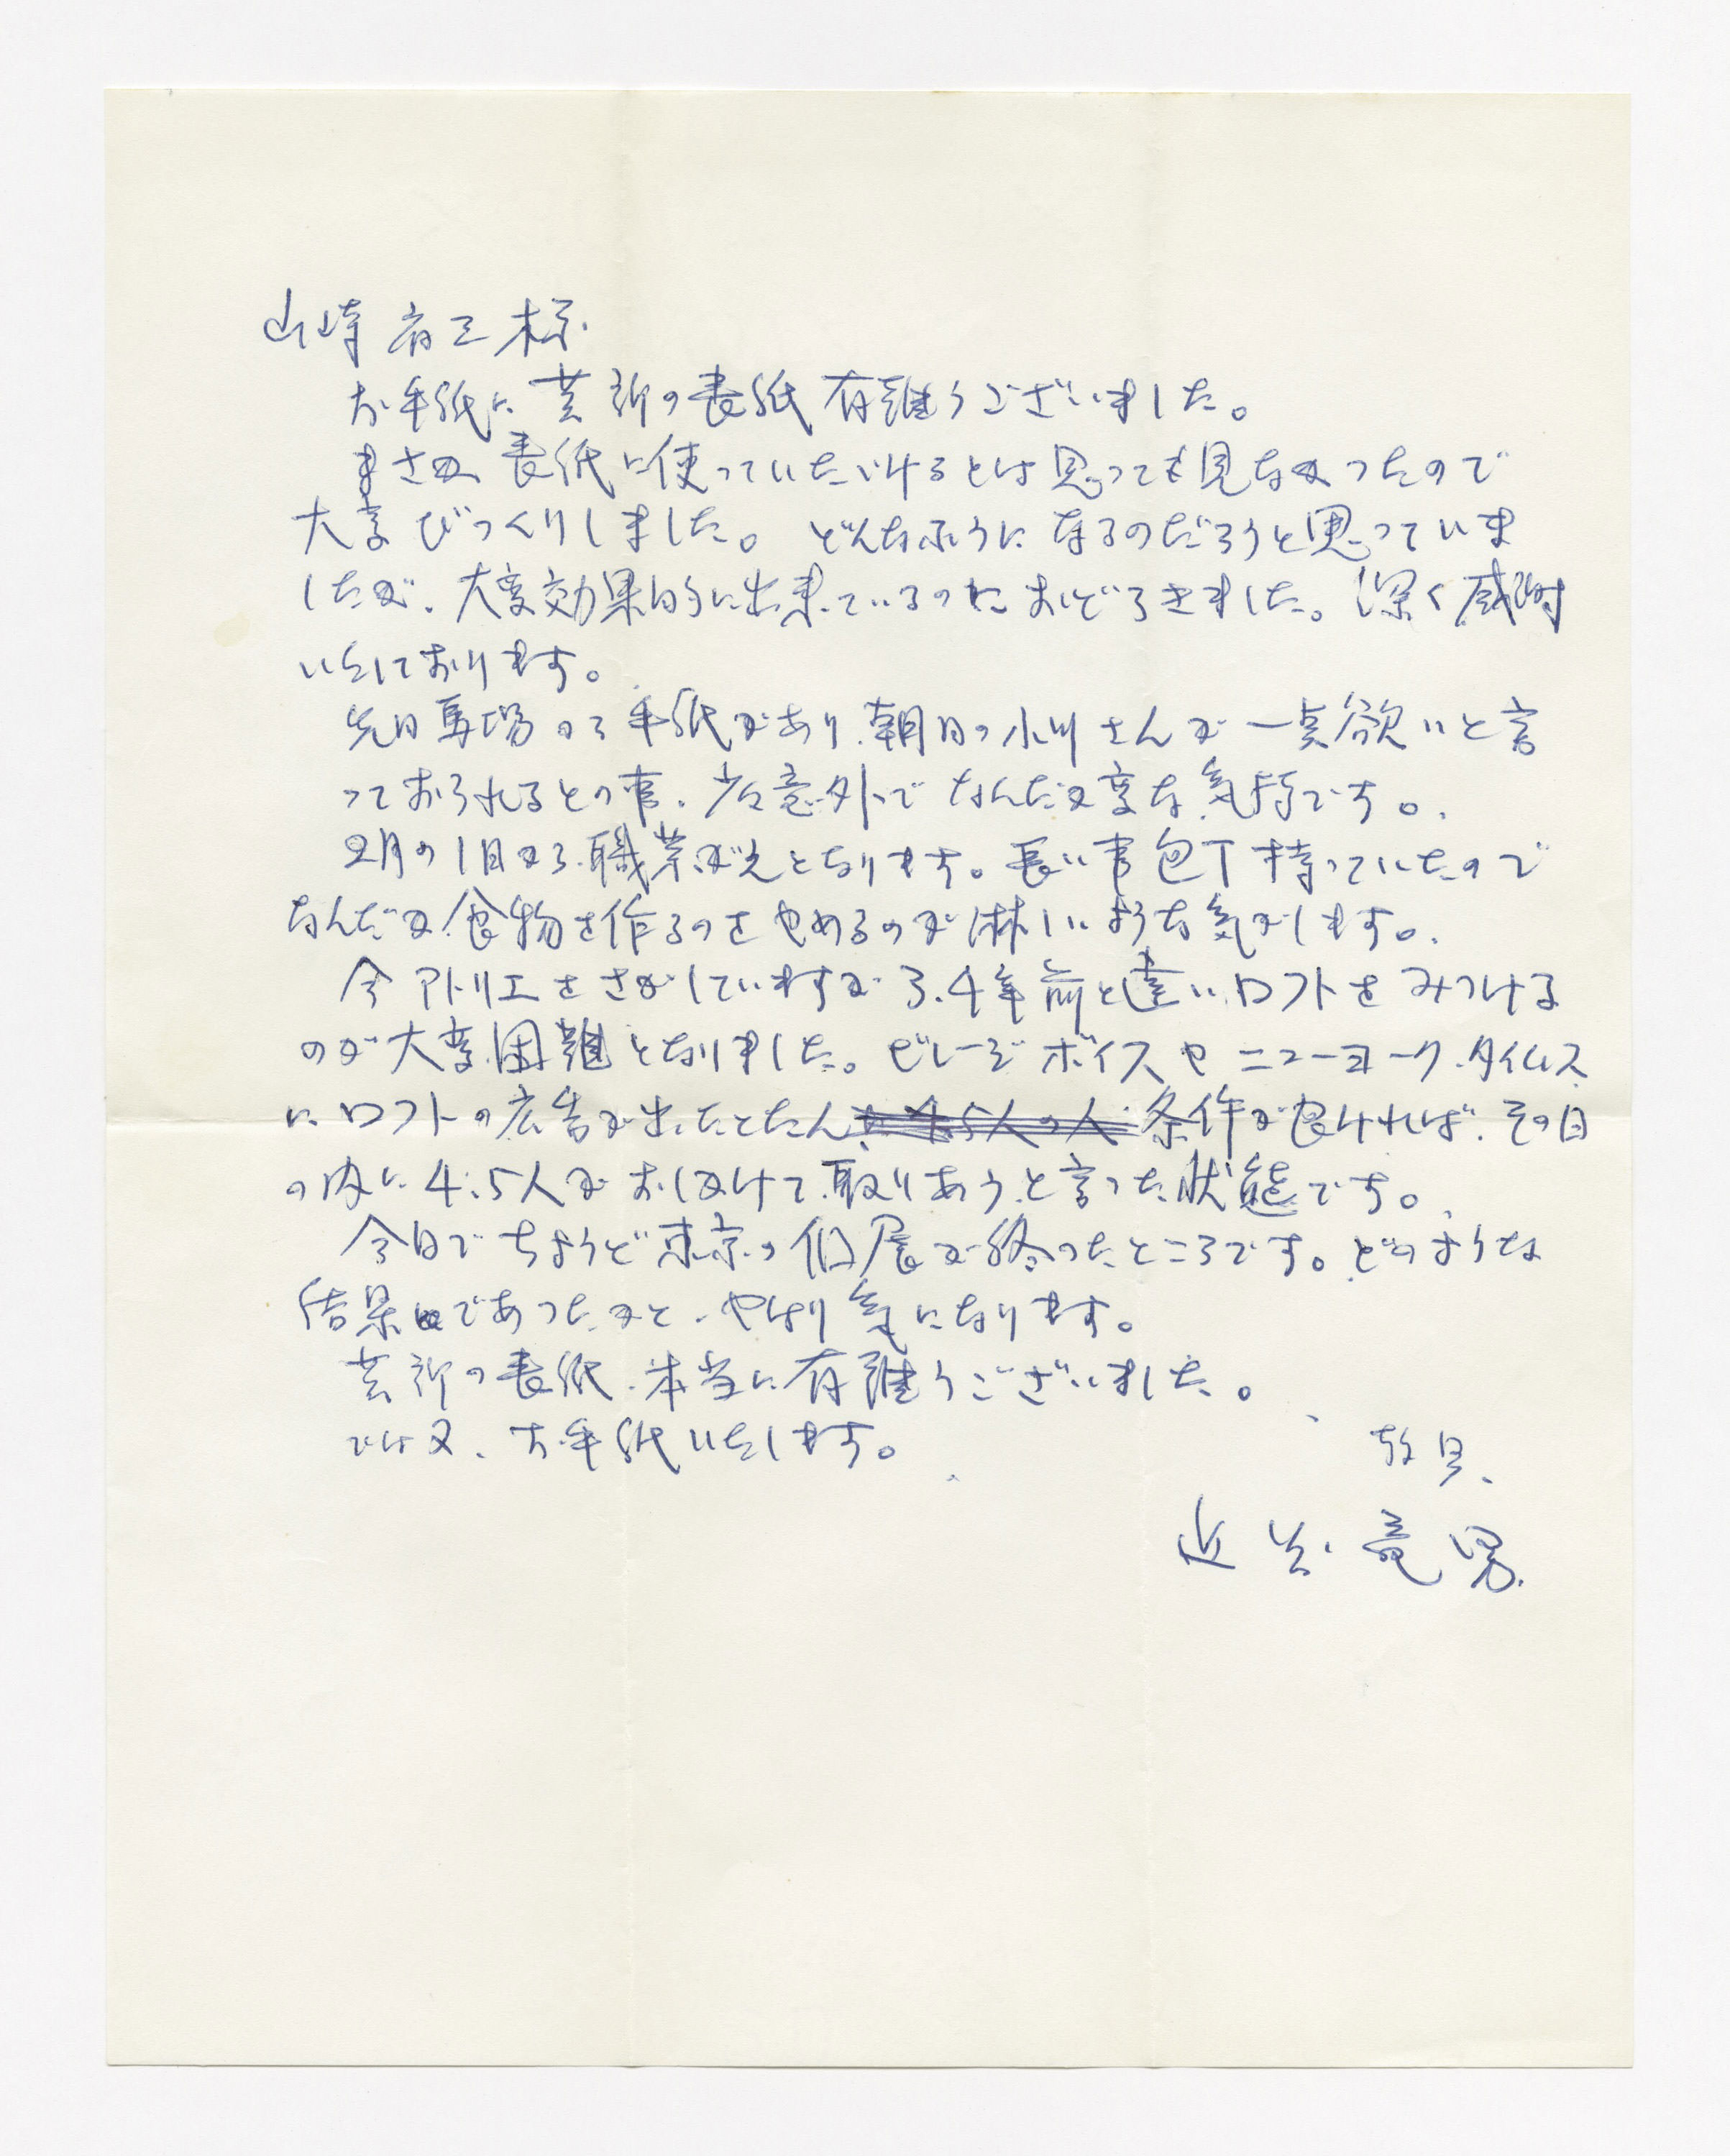 山崎省三様
お手紙に芸新の表紙有難うございました。
まさか表紙に使っていただけるとは思っても見なかったので
大変びっくりしました。どんなふうになるのだろうと思っていま
したが、大変効果的に出来ているのにおどろきました。深く感謝
いたしております。
先日馬場から手紙があり、朝日の小川さんが一点欲いと言
っておられるとの事、少々意外でなんだか変な気持です。
2月の1日から職業がえとなります。長い事包丁持っていたので
なんだか食物を作るのをやめるのが淋しいような気がします。
今アトリエをさがしていますが3.4年前と違いロフトをみつける
のが大変困難となりました。ビレージボイスやニューヨーク.タイムス
にロフトの広告が出たとたん 条件が良ければ、その日
の内に4.5人がおしかけて取りあうと言った状態です。
今日でちようど東京の個展が終ったところです。どのような
結果であったかと、やはり気になります。
芸新の表紙、本当に有難うございました。
では又、お手紙いたします。
敬具、
近藤竜男